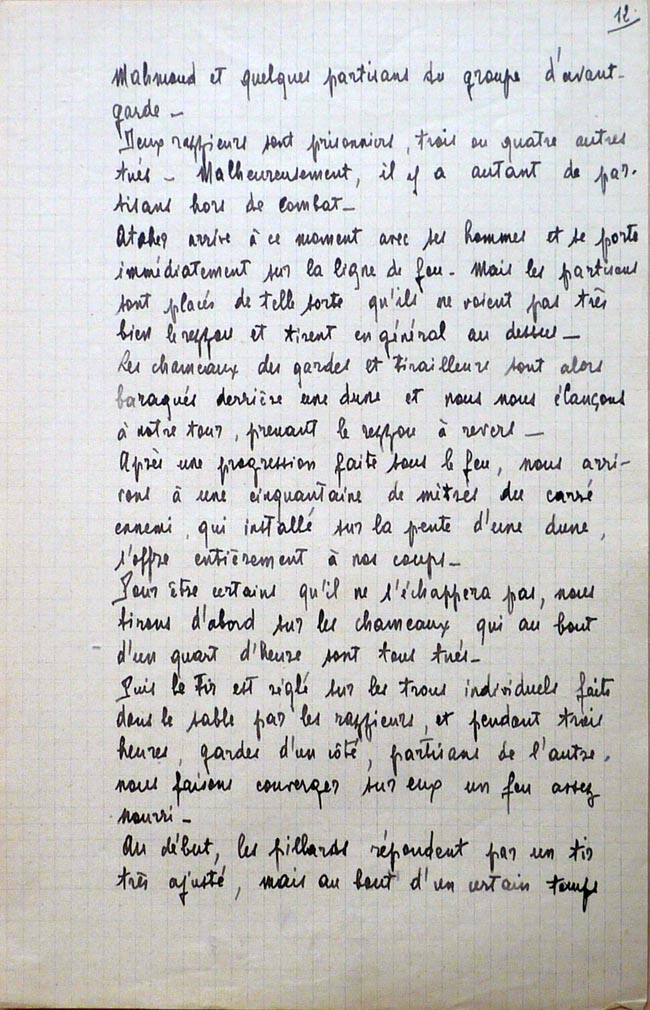 12
Mahmoud et quelques partisans du groupe d'avant-
garde -
Deux razzieurs sont prisonniers, trois ou quatre autres
tués - Malheureusement, il y a autant de par-
tisans hors de combat -
Ataher arrive à ce moment avec ses hommes et se porte
immédiatement sur la ligne de feu - Mais les partisans
sont placés de telle sorte qu'ils ne voient pas très
bien le rezzou et tirent en général au dessus -
Les chameaux des gardes et tirailleurs sont alors
baraqués derrière une dune et nous nous élançons
à notre tour, prenant le rezzou à revers -
Après une progression faite sous le feu, nous arri-
vons à une cinquantaine de mètres du carré
ennemi, qui installé sur la pente d'une dune,
s'offre entièrement à nos coups -
Pour être certains qu'il ne s'échappera pas, nous
tirons d'abord sur les chameaux qui au bout
d'un quart d'heure sont tous tués -
Puis le tir est réglé sur les trous individuels faits
dans le sable par les razzieurs, et pendant trois
heures, gardes d'un côté, partisans de l'autre,
nous faisons converger sur eux un feu assez
nourri -
Au début, les pillards répondent par un tir
très ajusté, mais au bout d'un certain temps